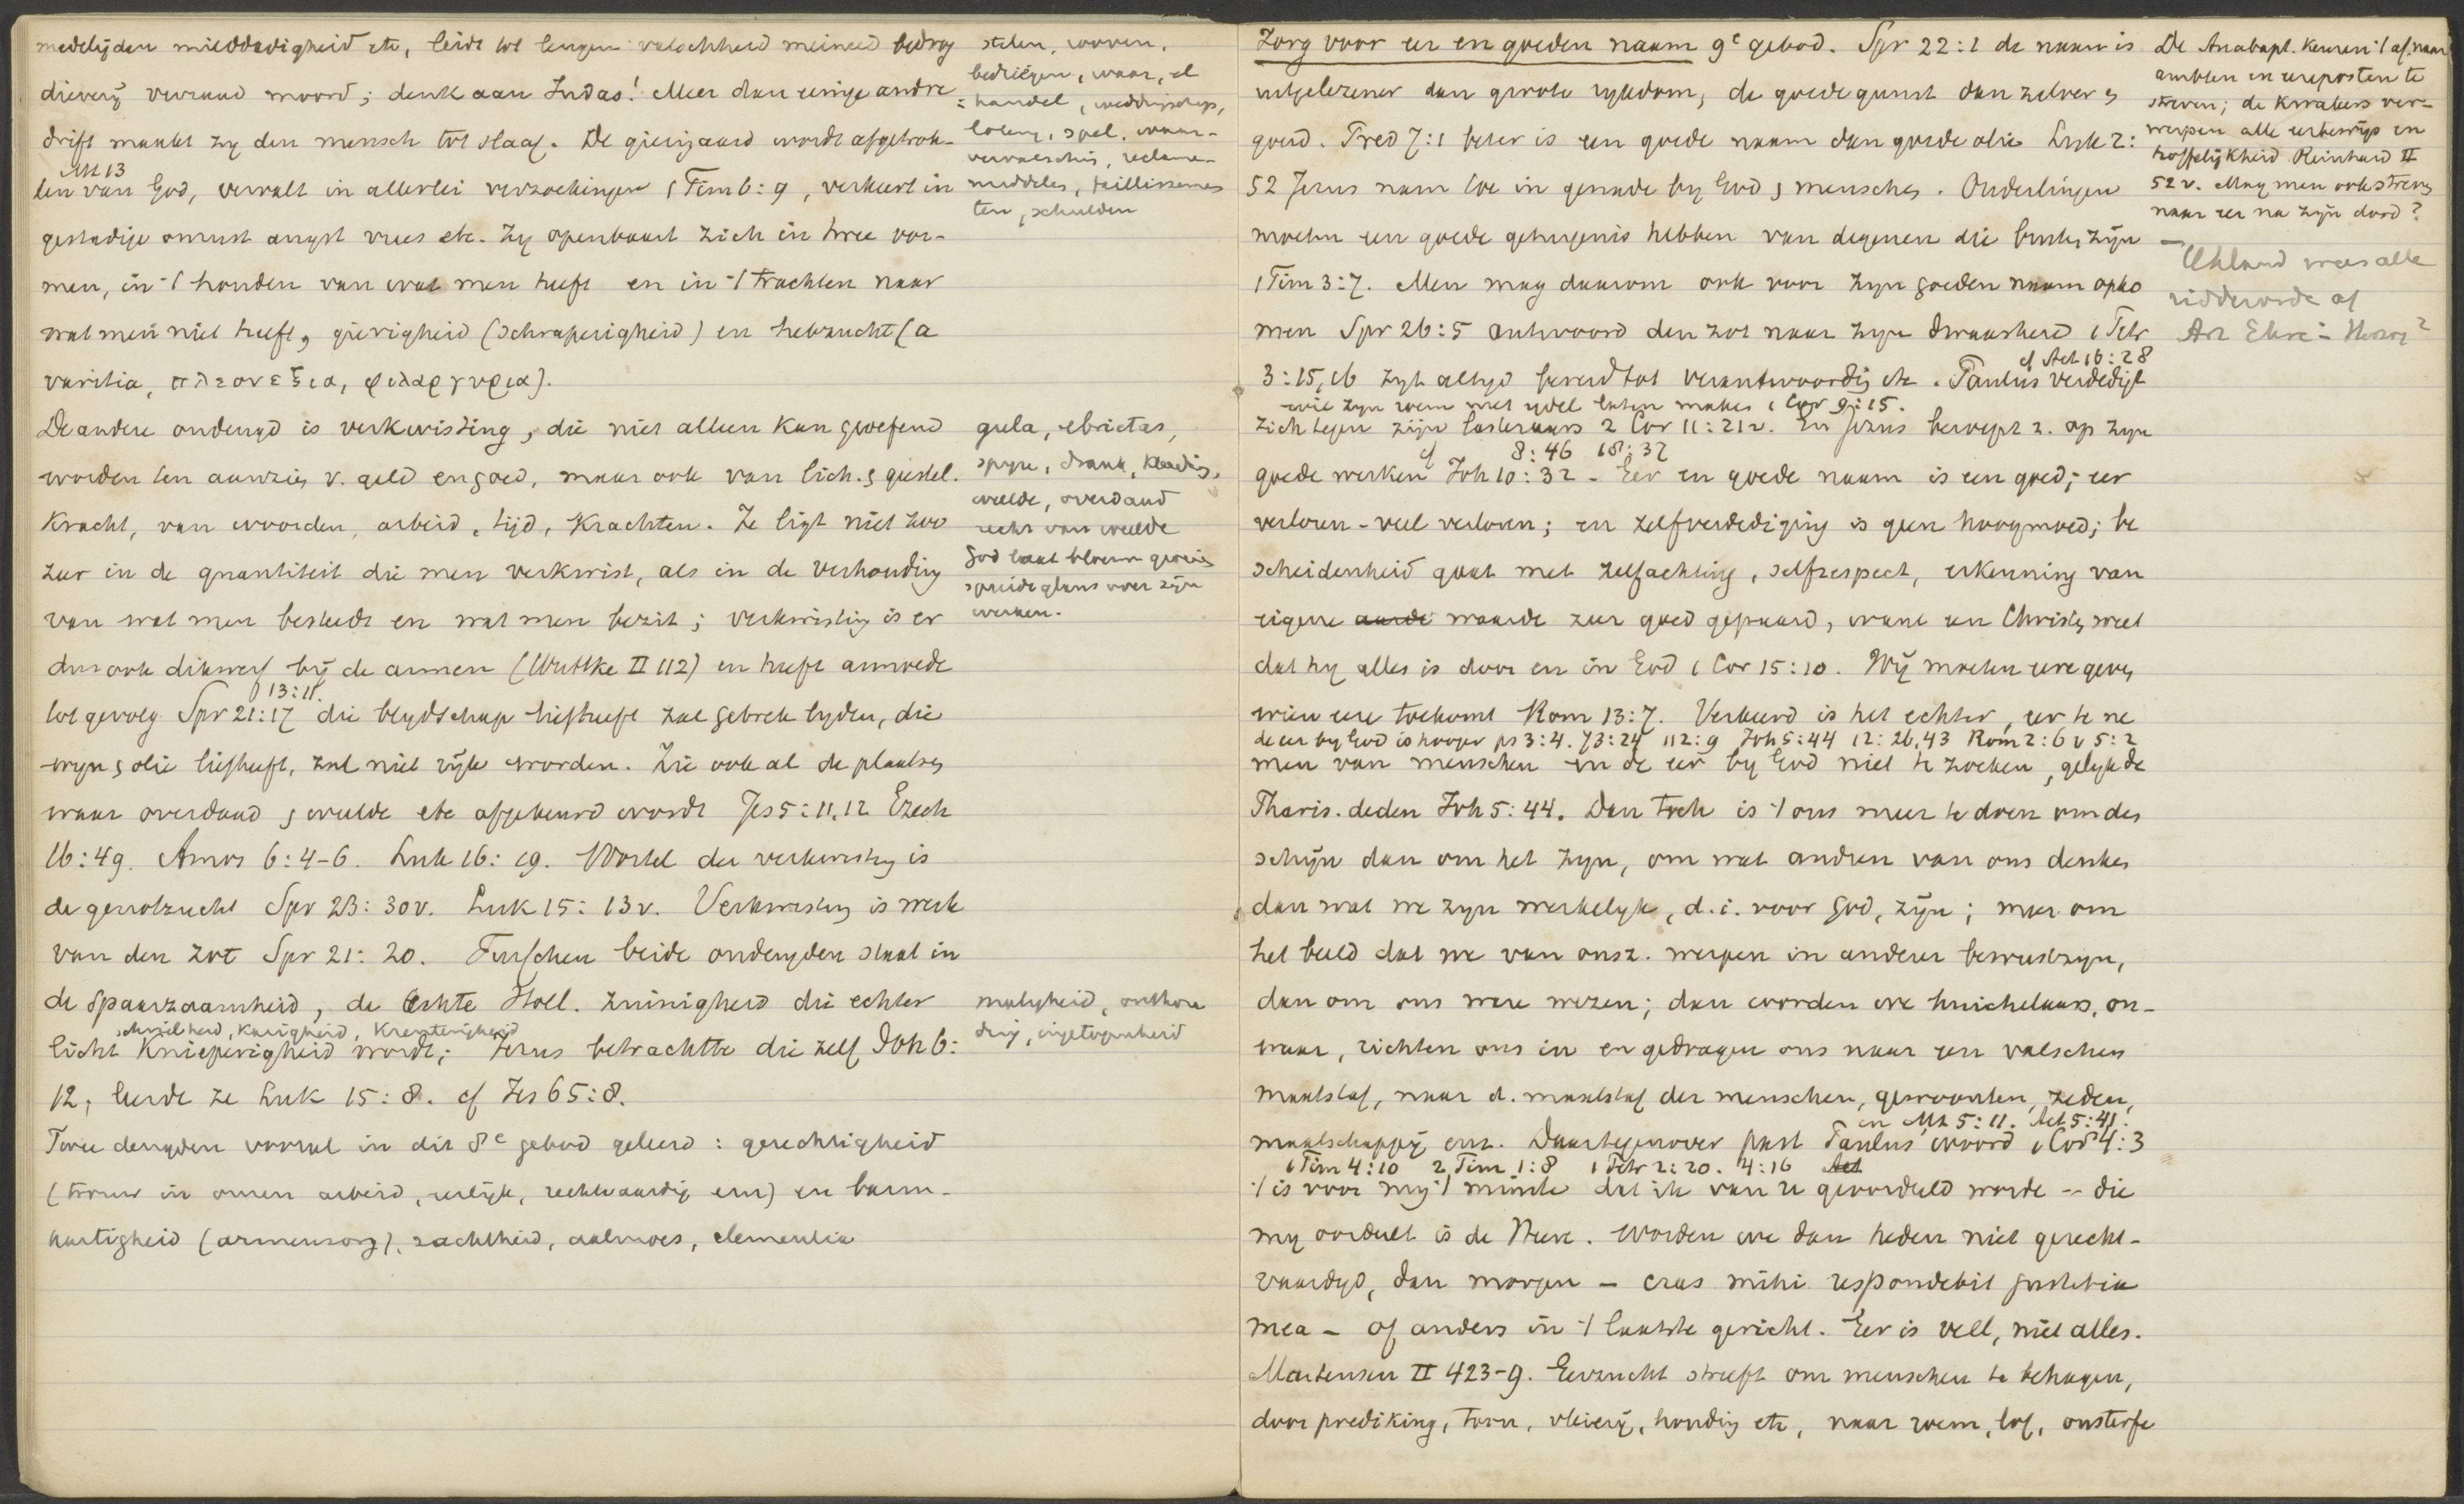 medelijden milddadigheid etc, leidt tot leugen valschheid meineed bedrog
dieverij verraad moord; denk aan Judas! Meer dan eenige andre
drift maakt zij den mensch tot slaaf. De gierigaard wordt afgetrok-
Mt 13
ken van God, vervalt in allerlei verzoekingen 1 Tim 6:9, verkeert in
gestadige onrust angst vrees etc. Zij openbaart zich in twee vor-
men, in 't houden van wat men heeft en in 't trachten naar
wat men niet heeft, gierigheid (schraperigheid) en hebzucht (a
varitia, πλεονεξια, φιλαργυρια).
De andere ondeugd is verkwisting, die niet alleen kan geoefend
worden ten aanzien v. geld en goed, maar ook van lich. & geestel.
kracht, van woorden, arbeid, tijd, krachten. Ze ligt niet zoo
zeer in de quantiteit die men verkwist, als in de verhouding
van wat men besteedt en wat men bezit; verkwisting is er
dus ook dikwerf bij de armen (Wuttke II 112) en heeft armoede
13:11.
tot gevolg Spr 21:17 die blydschap liefheeft zal gebrek lyden, die
wyn & olie liefheeft, zal niet rijk worden. Zie ook al de plaatsen
waar overdaad & weelde etc afgekeurd wordt Jes 5:11,12 Ezech
16:49. Amos 6:4-6. Luk 16:19. Wortel der verkwisting is
de genotzucht Spr 23:30v. Luk 15:13v. Verkwisting is werk
van den zot Spr 21:20. Tusschen beide ondeugden staat in
de spaarzaamheid, de echte Holl. zuinigheid die echter
schrielheid, karigheid, krenterigheid
licht knieperigheid wordt; Jezus betrachtte die zelf Joh 6:
12, leerde ze Luk 15:8. cf Jes 65:8.
Twee deugden vooral in dit 8e gebod geleerd: gerechtigheid
(trouw in onzen arbeid, eerlijk, rechtvaardig enz) en barm-
hartigheid (armenzorg), zachtheid, aalmoes, clementia
stelen, rooven,
bedriegen, waar, el
= handel, weddingschap,
lotery, spel, waar-
vervalsching, reclame-
middelen, faillissemen
ten, schulden
gula, ebrietas,
spyze, drank, kleeding,
weelde, overdaad
recht van weelde
God laat bloemen groeien
spreidt glans over zijn
werken.
matigheid, onthou
ding, ingetogenheid
Zorg voor eer en goeden naam 9e gebod. Spr 22:1 de naam is
uitgelezener dan groote rykdom, de goede gunst dan zilver &
goud. Pred 7:1 beter is een goede naam dan goede olie Luk 2:
52 Jezus nam toe in genade by God & menschen. Ouderlingen
moeten een goede getuigenis hebben van degenen die buiten zijn
1 Tim 3:7. Men mag daarom ook voor zyn goeden naam opko
men Spr 26:5 antwoord den zot naar zyn dwaasheid 1 Petr
cf Act 16:28
3:15,16 zyt altyd bereid tot verantwoording etc. Paulus verdedigt
wil zyn roem niet ydel laten maken 1 Cor 9:15.
zich tegen zijn lasteraars 2 Cor 11:21v. En Jezus beroept z. op zyn
cf 8:46 18:32
goede werken Joh 10:32. Eer en goede naam is een goed; eer
verloren - veel verloren; en zelfverdediging is geen hoogmoed; be
scheidenheid gaat met zelfachting, selfrespect, erkenning van
eigene aarde waarde zeer goed gepaard, want een Christen weet
dat hy alles is door en in God 1 Cor 15:10. Wij moeten eere geven
wien eere toekomt Rom 13:7. Verkeerd is het echter, eer te ne
de eer by God is hooger ps 3:4. 73:24 112:9 Joh 5:44 12:26,43 Rom 2:6v 5:2
men van menschen en de eer by God niet te zoeken, gelyk de
Phariz. deden Joh 5:44. Dan toch is 't ons meer te doen om den
schijn dan om het zyn, om wat andren van ons denken
dan wat we zyn werkelyk, d.i. voor God, zijn; meer om
het beeld dat we van onsz. werpen in anderer bewustzyn,
dan om ons ware wezen; dan worden we huichelaars, on-
waar, richten ons in en gedragen ons naar een valschen
maatstaf, naar d. maatstaf der menschen, gewoonten, zeden,
en Mt 5:11. Act 5:41.
maatschappij enz. Daartegenover past Paulus woord 1 Cor 4:3
1 Tim 4:10 2 Tim 1:8 1 Petr 2:20. 4:16 Act
't is voor mij 't minste dat ik van u geoordeeld worde -- die
my oordeelt is de Heere. Worden we dan heden niet gerecht-
vaardigd, dan morgen - cras mihi respondebit justitia
mea - of anders in 't laatste gericht. Eer is veel, niet alles.
Martensen II 423-9. Eerzucht streeft om menschen te behagen,
door prediking, toon, vleierij, houding etc, naar roem, lof, onsterfe
De Anabapt. keuren 't af naar
ambten en eereposten te
streven; de Kwakers ver-
werpen alle eerbewijs en
hoffelijkheid Reinhard II
52v. Mag men ook streven
naar eer na zijn dood?
—
Uhland wees alle
ridderorde af
Art Ehre in Herzog²